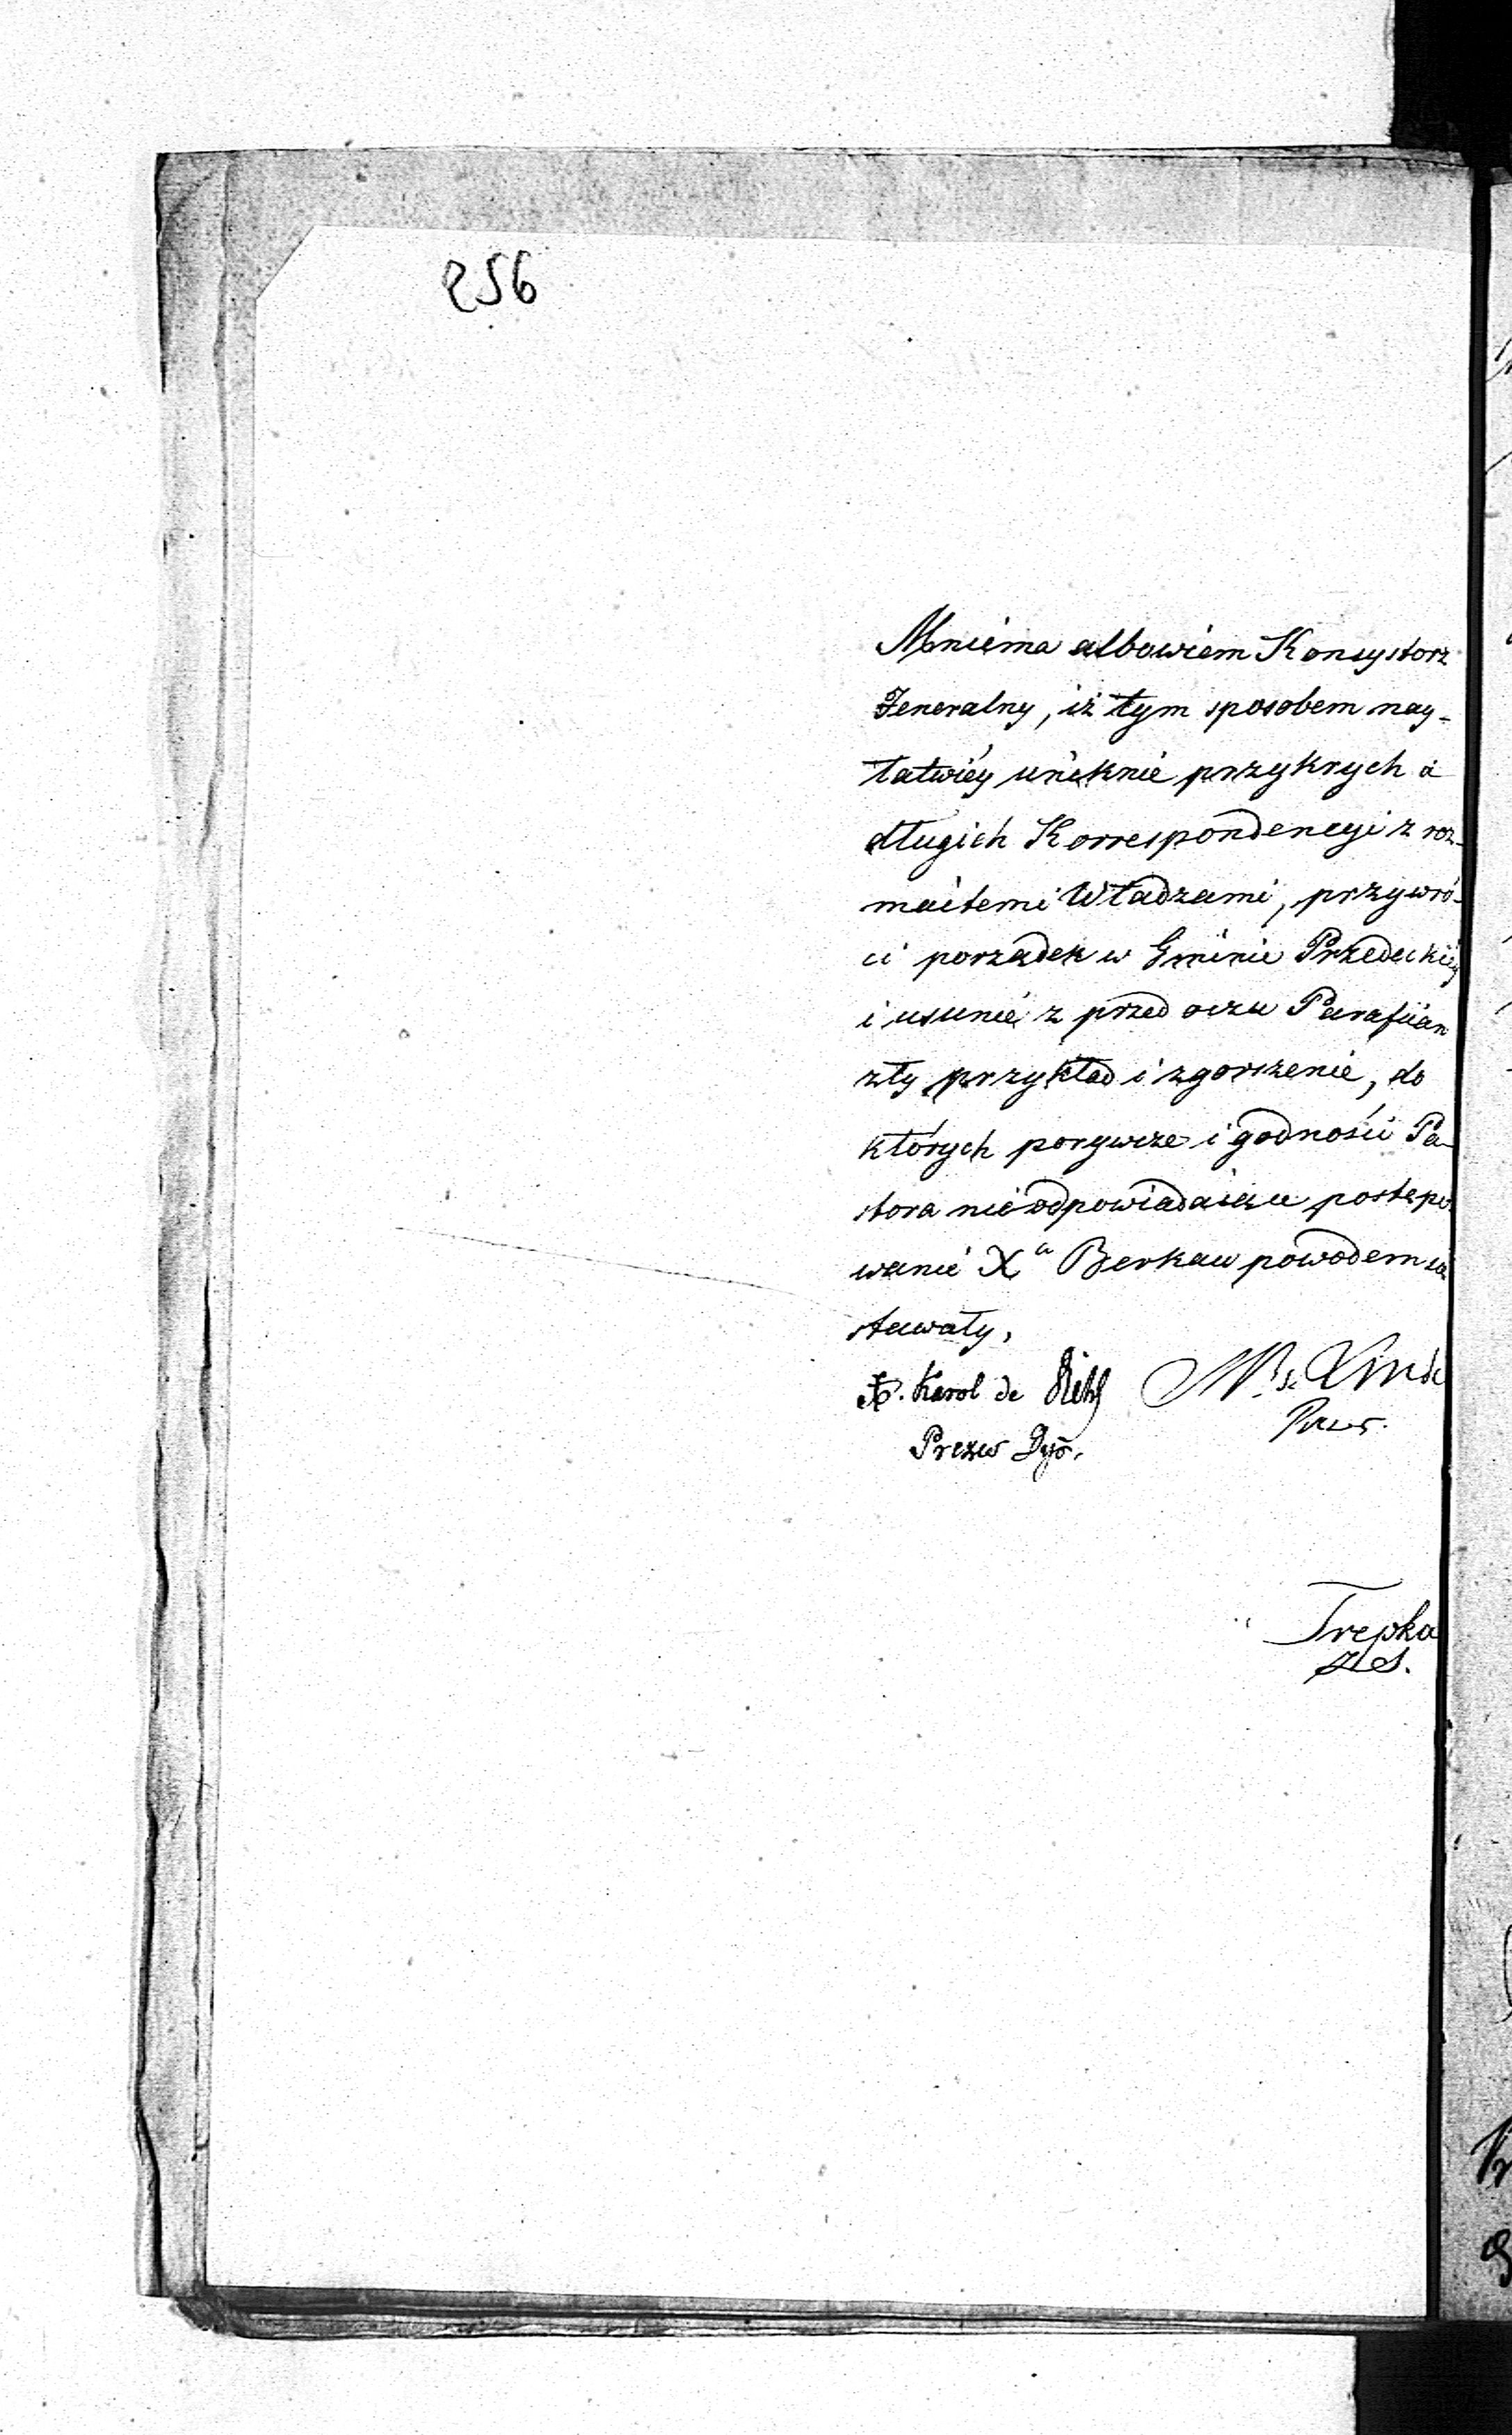 256
Mniema albowiem Konsystorz
Jeneralny, iż tym sposobem nay-
łatwiéy uniknie przykrych i
długich Korrespondencyi z roz-
maitemi Władzami, przywró-
ci porządek w Gminie Przedeckiéy
i usunie z przed oczu Parafiian
zły przykład i zgorszenie, do
których porywcze i godności Pa-
stora nieodpowiadaiące postępo-
wanie Xa Berkau powodem sią
stawały,
X. Karol de
Prezes
Prezes.
Trepka